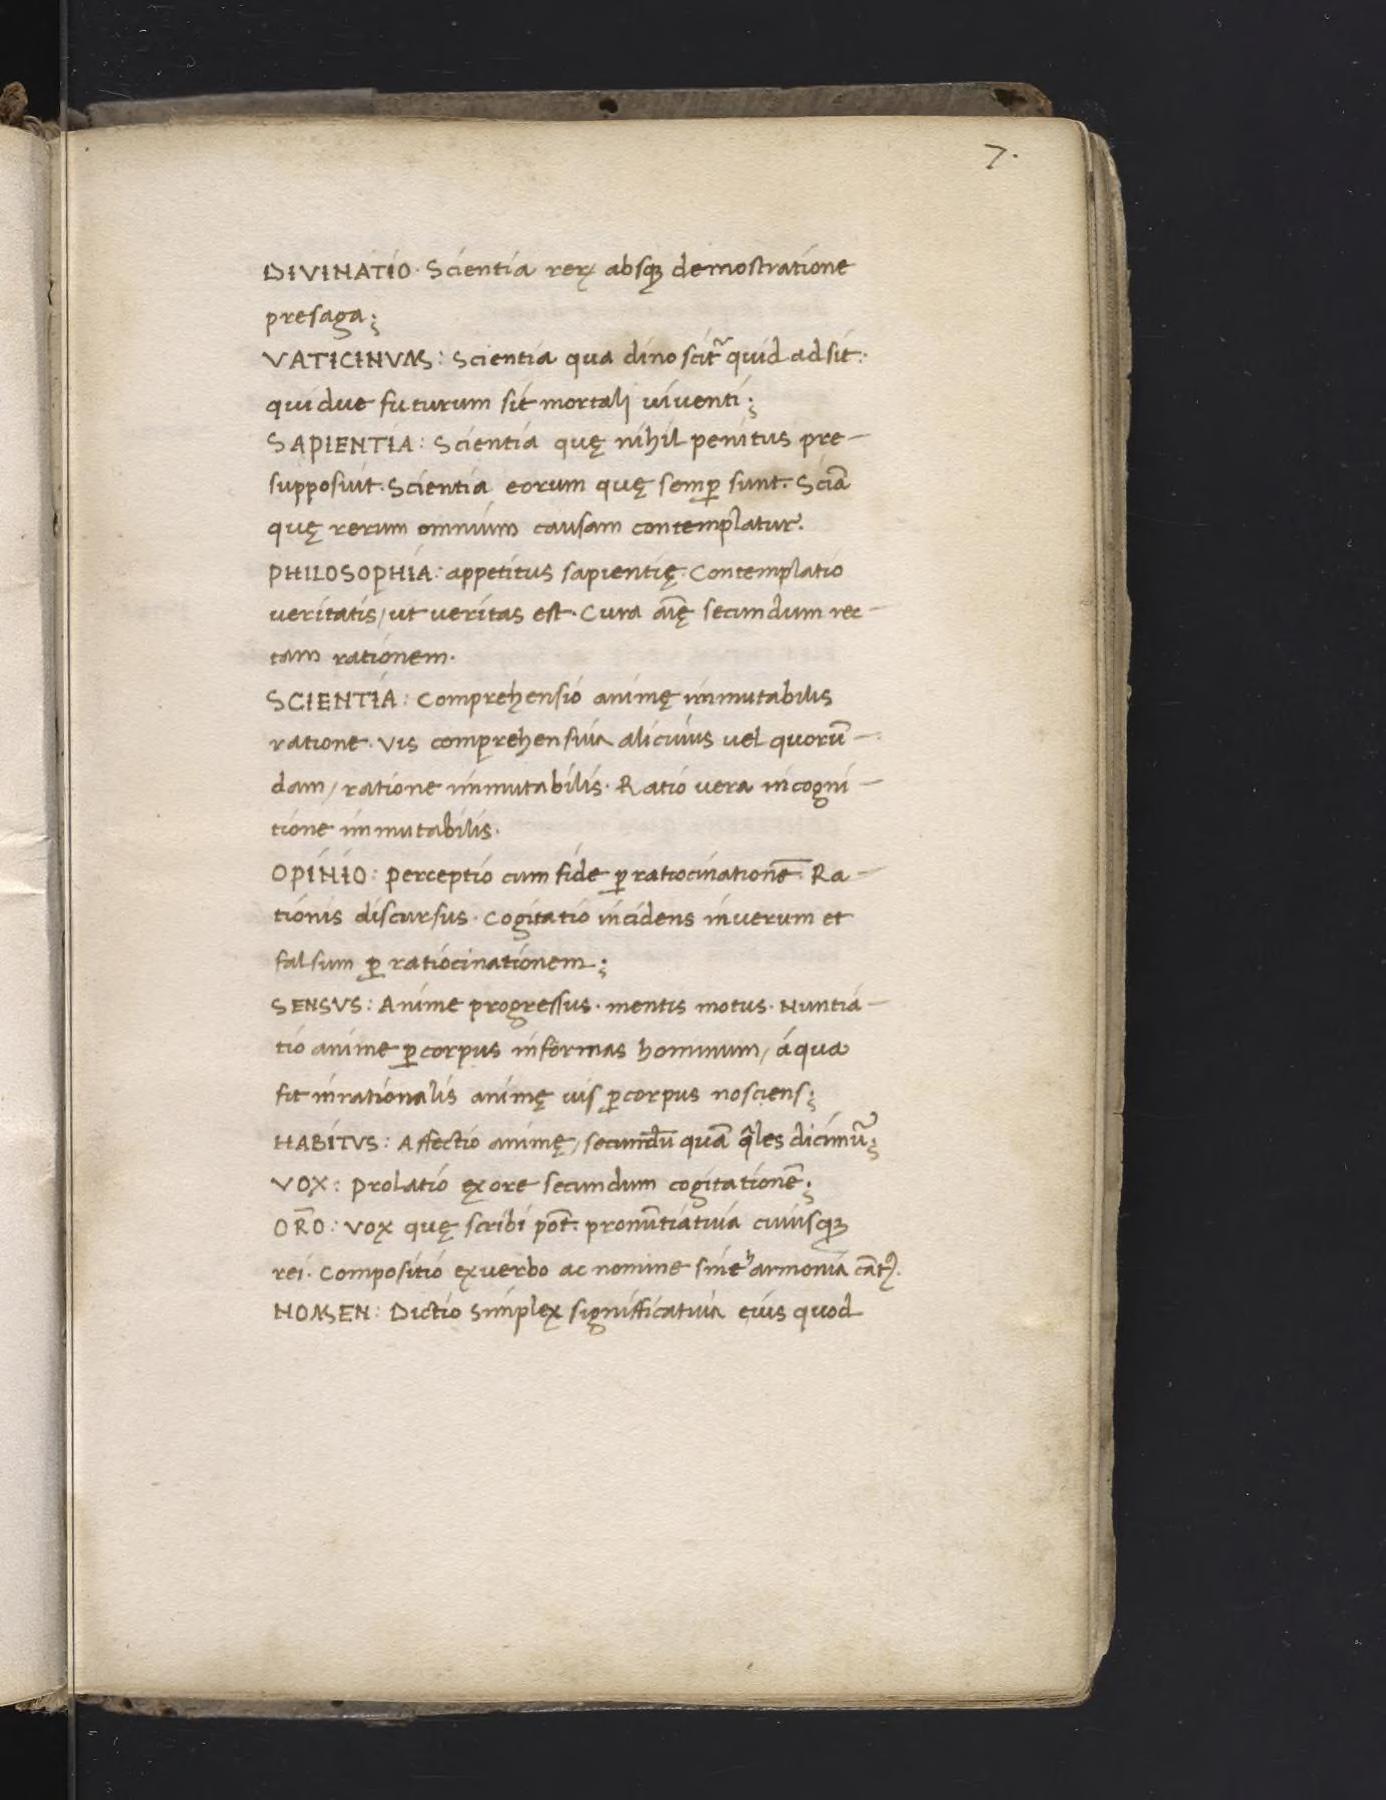 7.
DIVINATIO. Scientia reꝝ absqꝫ demostratione
presaga;
VATICINVM: Scientia qua dinoscit᷑ quid adsit:
quidue futurum sit mortali uiuenti;
SAPIENTIA: Scientia quę nihil penitus pre-
supposuit. Scientia eorum quę semꝑ sunt. Sciã
quę rerum omnium causam contemplatur.
PHILOSOPHIA: appetitus sapientię. Contemplatio
ueritatis/ ut ueritas est. Cura aı̄ę secundum rec-
tam rationem.
SCIENTIA: Comprehensio animę immutabilis
ratione. Vis comprehensiua alicuius uel quorū-
dam/ ratione immutabilis. Ratio uera in cogni-
tione immutabilis.
OPINIO: Perceptio cum fide ꝑ ratiocinationē. Ra-
tionis discursus. Cogitatio incidens in uerum et
falsum ꝑ ratiocinationem;
SENSVS: Anime progressus. mentis motus. Nuntia-
tio anime ꝑ corpus in formas hominum/ á qua
fit inrationalis animę uis ꝑ corpus nosciens;
HABITVS: Affectio animę/ secundū quā q̃les dicimu᷑;
VOX: Prolatio ex ore secundum cogitationē;
OR̄O: Vox quę scribi pōt. pronūtiatiua cuiusqꝫ
rei. Compositio ex uerbo ac nomine sine harmonia cātꝰ.
NOMEN: Dictio simplex significatiua eius quod